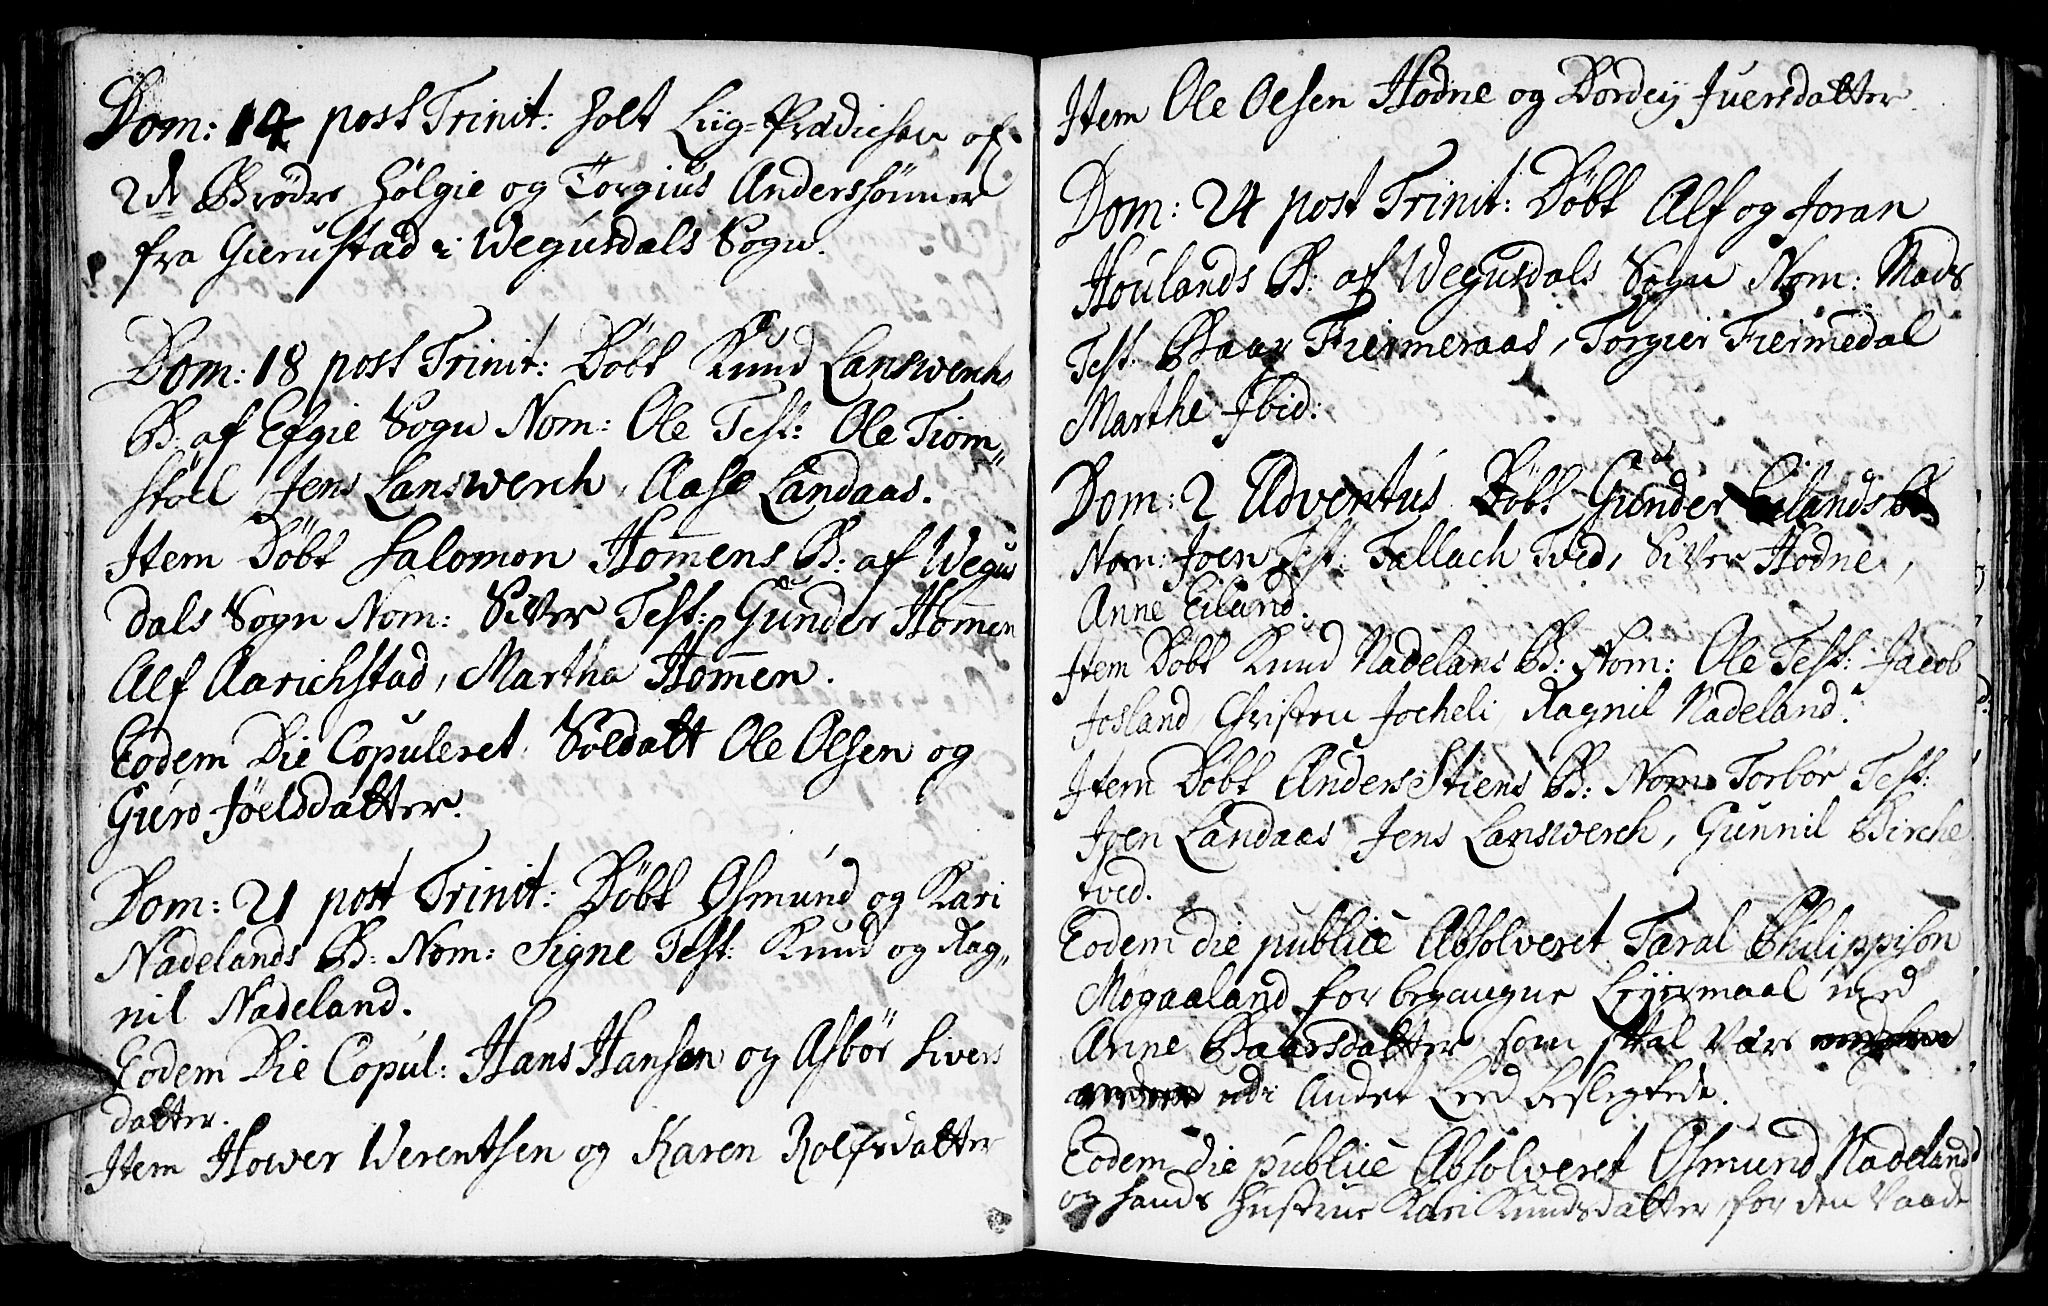 Dom: 14 post Trinit: holt Liig-Prædichen af
2de Brødre Hølgie og Torgius Anderssønner
fra Gierustad i Wegusdals Sogn.
Dom: 18 post Trinit: Døbt Knud Lanswerchs
B: af Efgie Sogn Nom: Ole Test: Ole Tiom„
støel, Jens Lanswerch, Aase Landaas.
Item Døbt Salomon Hommens B: af Wegus
dals Sogn Nom: Siver Test: Gunder Hommen
Alf Aarichstad, Martha Hommen.
Eodem Die Copuleret Soldatt Ole Olsen og
Guro Joelsdatter.
Dom: 21 post Trinit: Døbt Osmund og Kari
Nadelands B: Nom: Signe Test: Knud og Rag„
nil Nadeland.
Eodem Die Copul: Hans Hansen og Asbør Sivers
datter.
Item Hower Werentsen og Karen Rolfsdatter
Item Ole Olsen Hodne og Dordey Juersdatter.
Dom: 24 post Trinit: Døbt Alf og Joran
Houlands B: af Wegusdals Sogn Nom: Mads
Test: Baar Fiermeraas, Torgier Fiermedal
Marthe Ibid:
Dom: 2 Adventus Døbt Gunder Eilands B
Nom: Joen Test: Tallach Tved, Siver Hodne,
Anne Eiland.
Item Døbt Knud Nadelans B: Nom: Ole Test: Jacob
Josland, Christen Jocheli, Ragnil Nadeland.
Item Døbt Anders Stiens B: Nom: Torbør Test:
Joen Landaas, Jens Lanswerch, Gunnil Birche
tved.
Eodem die publice Absolveret Taral Philippison
Mögaaland for begangne Leyermaal med
Anne Baarsdatter, som skal være
udi Andet Leed beslegtede.
Eodem die publice Absolveret Osmund Nadeland
og hands Hustrue Kari Knudsdatter, for den Vaade